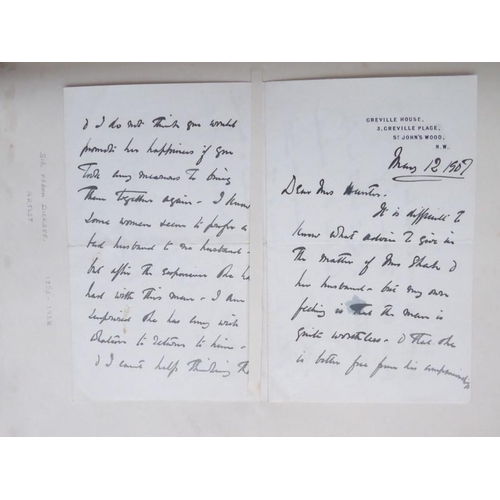 GREVILLE HOUSE,
3, GREVILLE PLACE,
ST JOHN'S WOOD,
N.W.
May 12 1907
Dear Mrs Hunter.
It is difficult to
know what advice to give in
the matter of Mrs Shab &
her husband - but my own
feeling is that the man is
quite worthless - & that she
is better free from his
& I do not think you would
promote her happiness if you
took any measures to bring
them together again - I know
some women seem to prefer a
bad husband to no husband -
but after the experience she has
had with this man - I am
surprised she has any wish
to return to him -
& I can't help thinking the
SIR FRANK DICKSEE
ARTIST
1853 - 1928